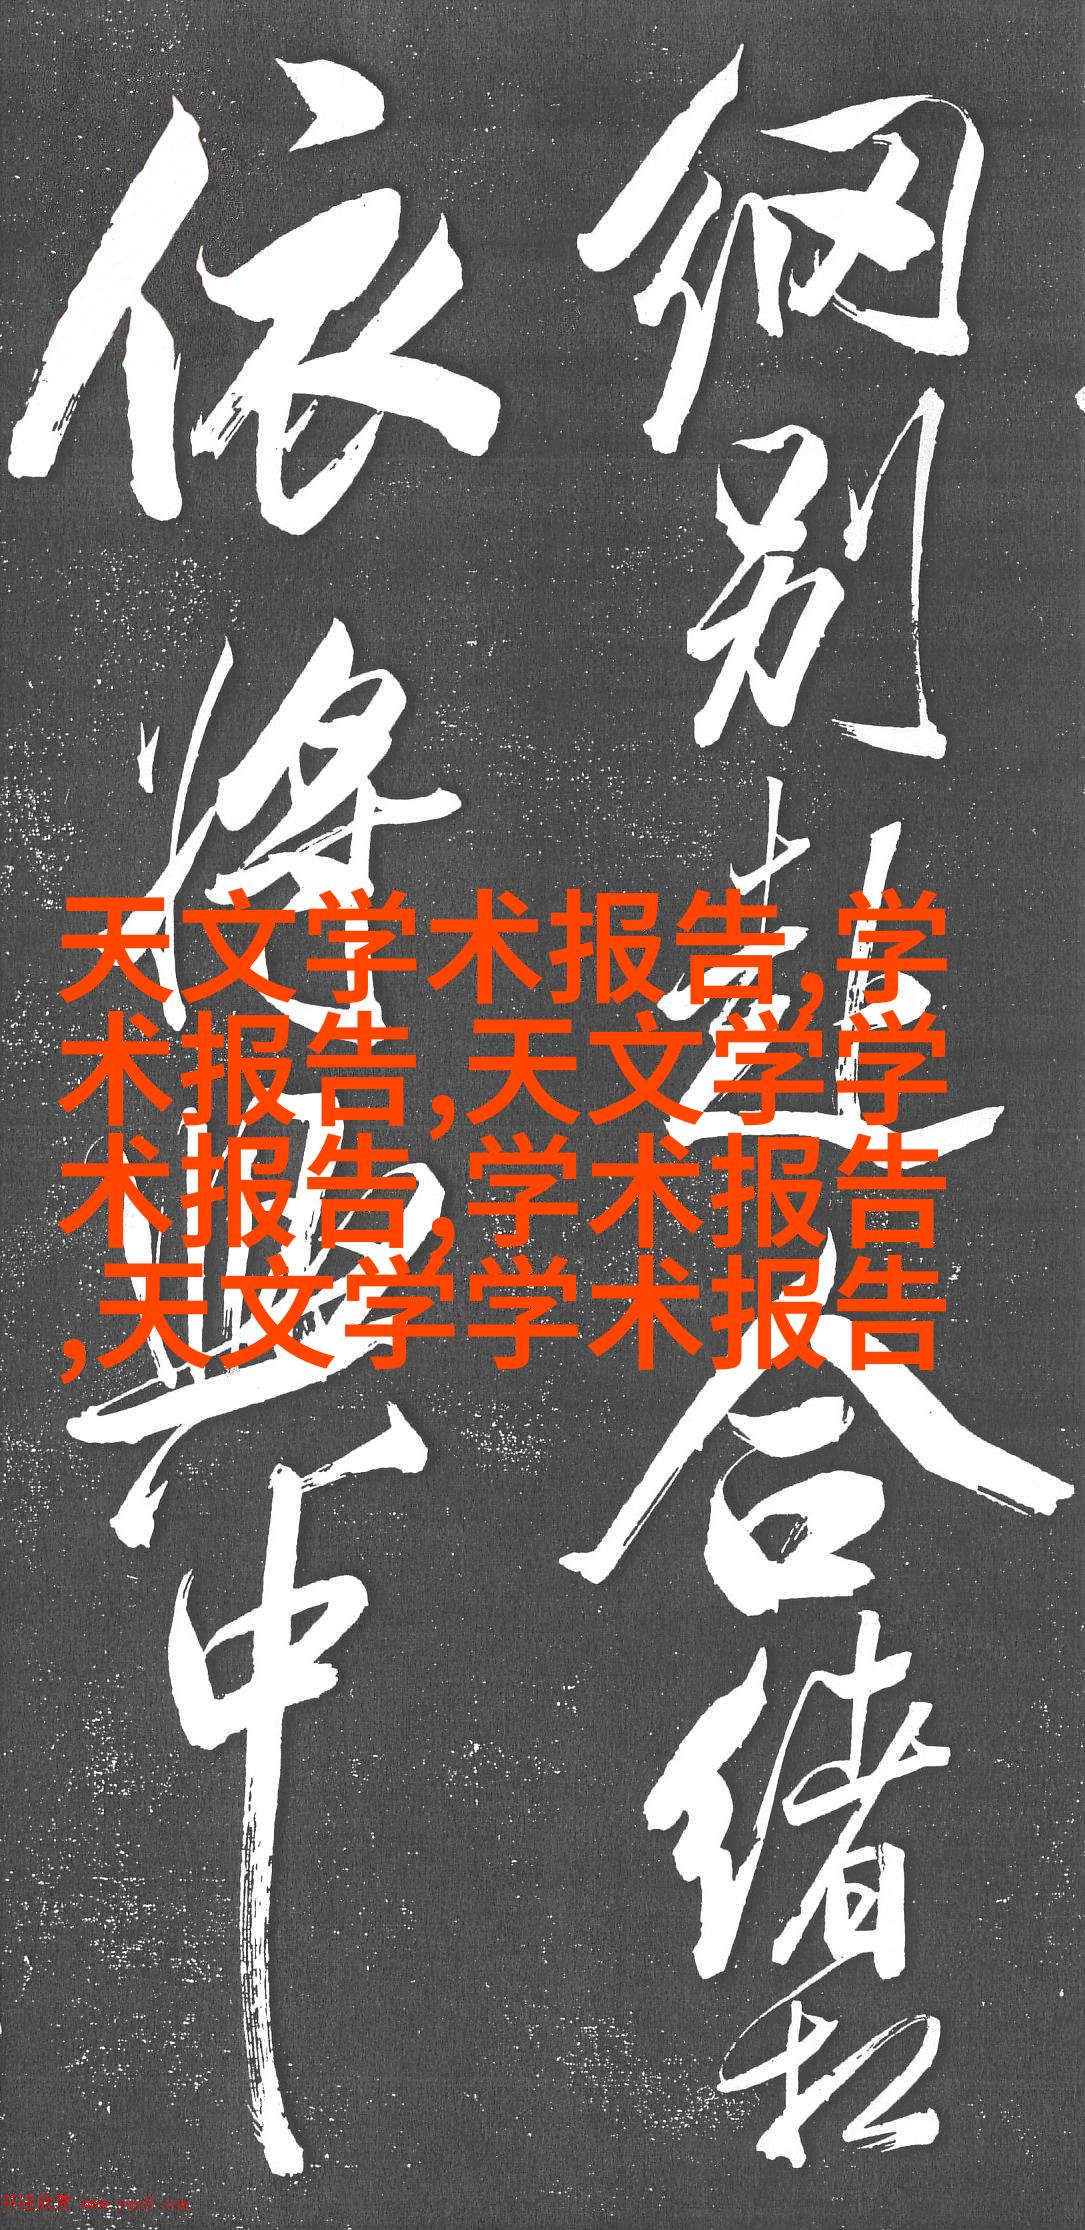 細别起合緒松
依將興中
天文学术报告,学
术报告,天文学学
术报告,学术报告
,天文学学术报告
书法欣赏 www.yac8.com